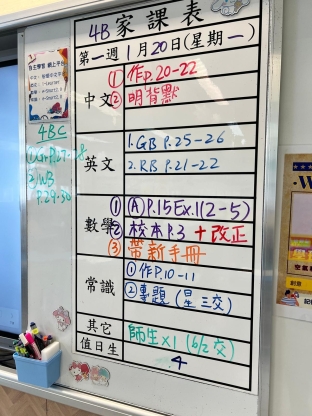 4B家課表
第一週1月20日(星期一)
中文
①作P.20-22
②明背默
英文
1.GB P.25-26
2.RB P.21-22
數學
①(A)P.15 Ex.1(2-5)
②校本P.3 + 改正
③帶新手冊
常識
①作P.10-11
②專題(星三交)
其它
師生x1 (6/2交)
值日生
4
自主學習 網上平台
4BC
①Gr P.27-28
②WB
P.29-30